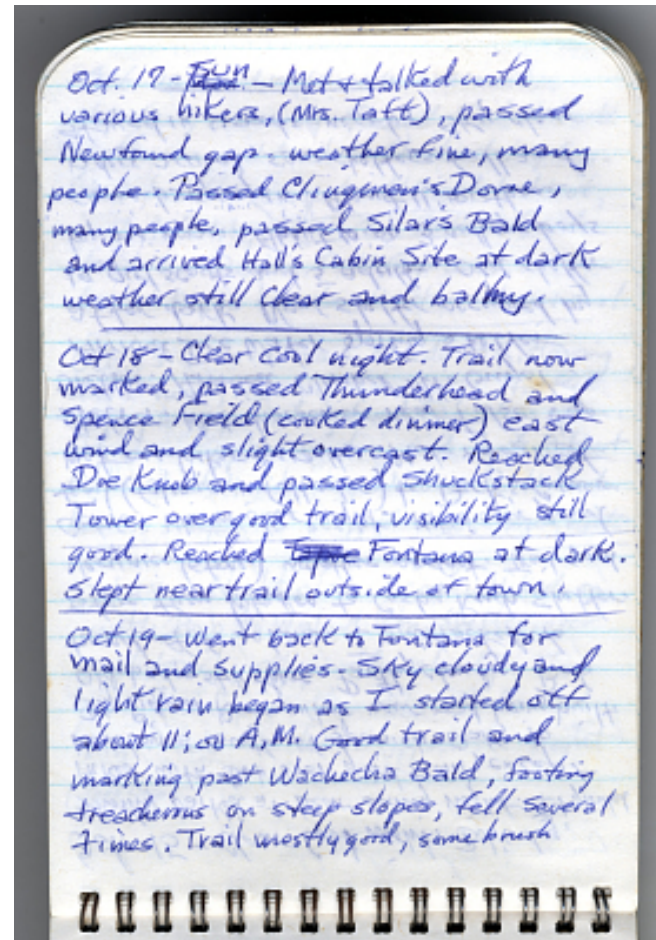 Oct. 17 - Sun - Met & talked with
various hikers, (Mrs. Taft), passed
Newfound gap. weather fine, many
people. Passed Clingmen's Dome,
many people, passed Silar's Bald
and arrived Hall's Cabin Site at dark
weather still clear and balmy.
Oct 18 - Clear cool night. Trail now
marked, passed Thunderhead and
Spence Field (cooked dinner) east
wind and slight overcast. Reached
Doe Knob and passed Shuckstack
Tower over good trail, visibility still
good. Reached Fontana at dark.
Slept near trail outside of town.
Oct 19 - Went back to Fontana for
mail and supplies. Sky cloudy and
light rain began as I started off
about 11:00 A.M. Good trail and
marking past Wachecha Bald, footing
treacherous on steep slopes, fell several
times. Trail mostly good, some brush